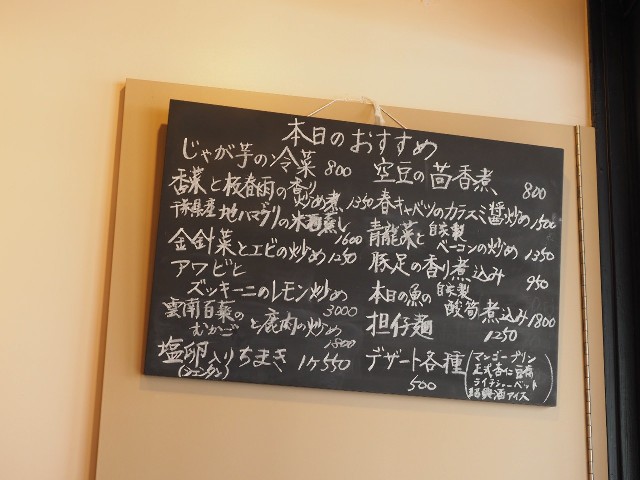 本日のおすすめ
じゃが芋の冷菜 800
香菜と板春雨の香り
炒め煮 1350
千葉県産 地ハマグリの米酒蒸し
1600
金針菜とエビの炒め 1250
アワビと
ズッキーニのレモン炒め
3000
雲南白菜の
むかごと鹿肉の炒め
1800
塩卵入りちまき 1ケ 550
(シエンタン)
空豆の茴香煮
800
春キャベツのカラスミ醤炒め 1500
青龍菜と自家製
ベーコンの炒め 1350
豚足の香り煮込み
950
本日の魚の自家製
酸筍煮込み 1800
担仔麺
1250
デザート各種
500
(マンゴープリン
正式杏仁豆腐
ライチシャーベット
紹興酒アイス)